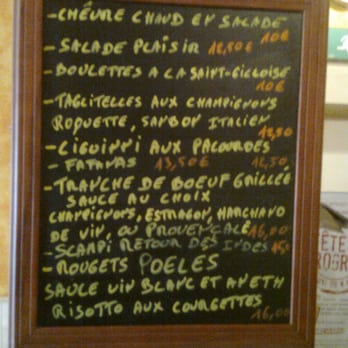 -CHÊVRE CHAUD EN SALADE
10€
-SALADE PLAISIR 12,50€
-BOULETTES A LA SAINT-GILLOISE
10€
-TAGLITELLES AUX CHAMPIGNONS
ROQUETTE, JAMBON ITALIEN
12,50
-LIGUINNI AUX PALOURDES
-FATAYAS 13,50€ 12,50
-TRANCHE DE BOEUF GRILLÉE
SAUCE AU CHOIX
CHAMPIGNONS, ESTRAGON, MARCHAND
DE VIN, OU PROVENCALE 16,00
-SCAMPI RETOUR DES INDES
-ROUGETS POELES
SAUCE VIN BLANC ET ANETH
RISOTTO AUX COURGETTES
16,00
ÊTE